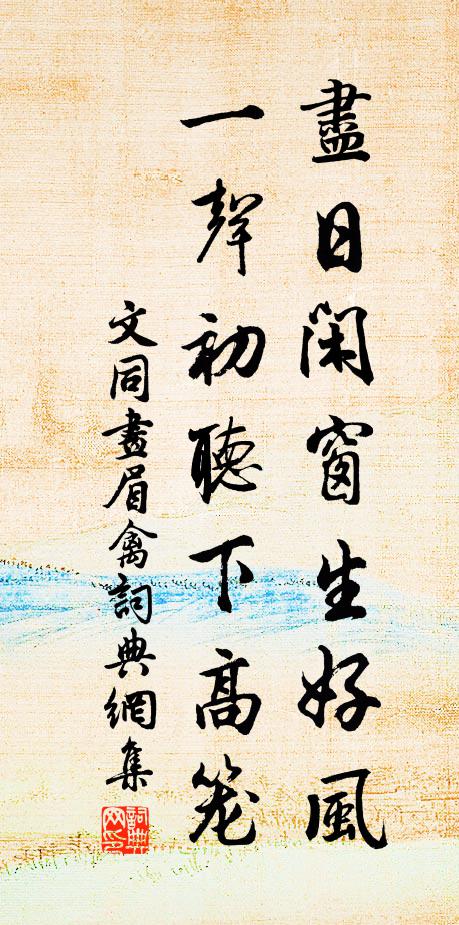 盡日閑窗生好風
一聲初聽下高笼
文同畫眉禽詞典網集